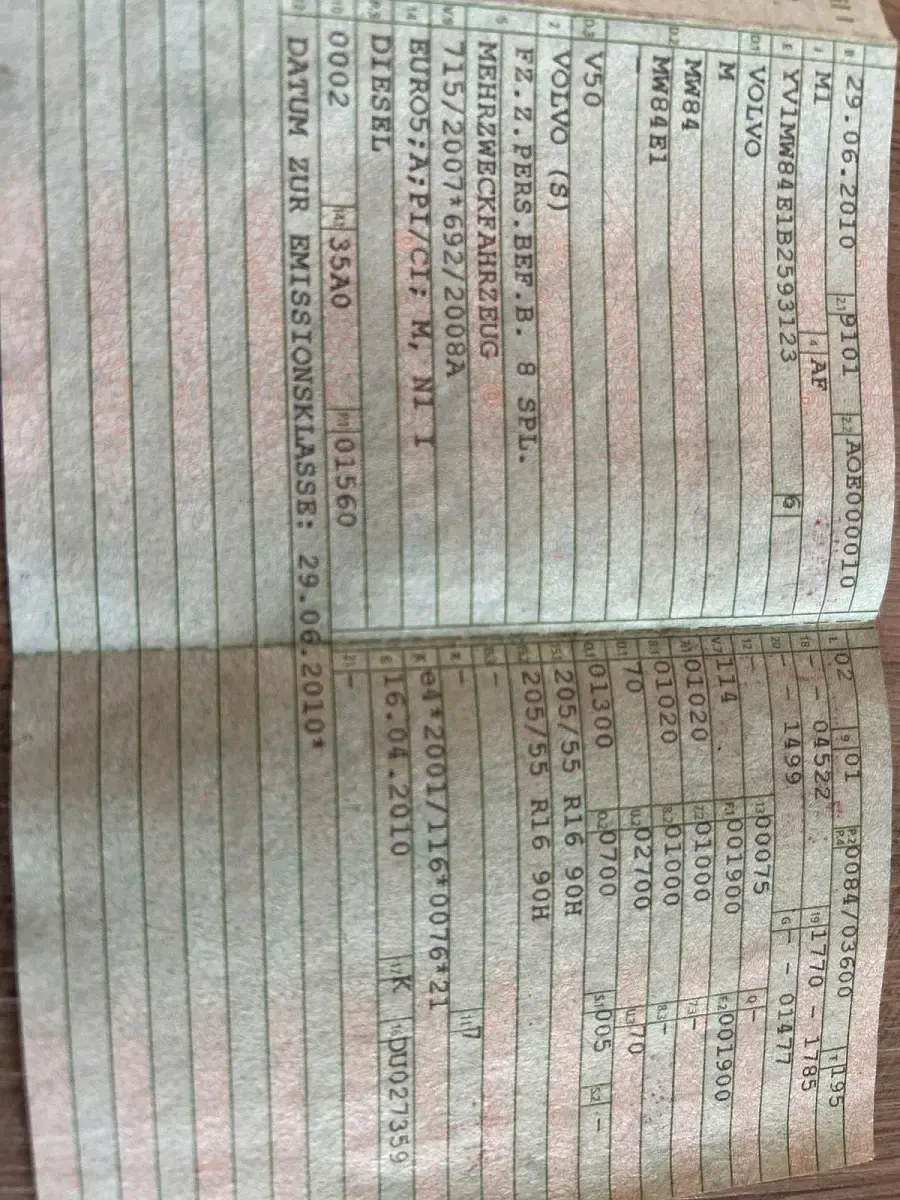 B 29.06.2010 2.1 9101 2.2 AOE000010
J M1 4 AF
E YV1MW84E1B2593123 6
D.1 VOLVO
M
D.2 MW84
MW84E1
-
D.3 V50
2 VOLVO (S)
5 FZ.Z.PERS.BEF.B. 8 SPL.
MEHRZWECKFAHRZEUG
V.9 715/2007*692/2008A
14 EURO5;A;PI/CI; M, N1 I
P.3 DIESEL
10 0002 14.1 35A0 P.1 01560
22 DATUM ZUR EMISSIONSKLASSE: 29.06.2010*
L 02 9 01 P.2 P.4 0084/03600 T 195
18 - - 04522 19 1770 - 1785
20 - - 1499 G - - 01477
12 - 13 00075 Q -
V.7 114 F.1 001900 F.2 001900
7.1 01020 7.2 01000 7.3 -
8.1 01020 8.2 01000 8.3 -
U.1 70 U.2 02700 U.3 70
O.1 01300 O.2 0700 S.1 005 S.2 -
15.1 205/55 R16 90H
15.2 205/55 R16 90H
15.3 -
R - 11 7
K e4*2001/116*0076*21
6 16.04.2010 17 K 16 DU027359
21 -